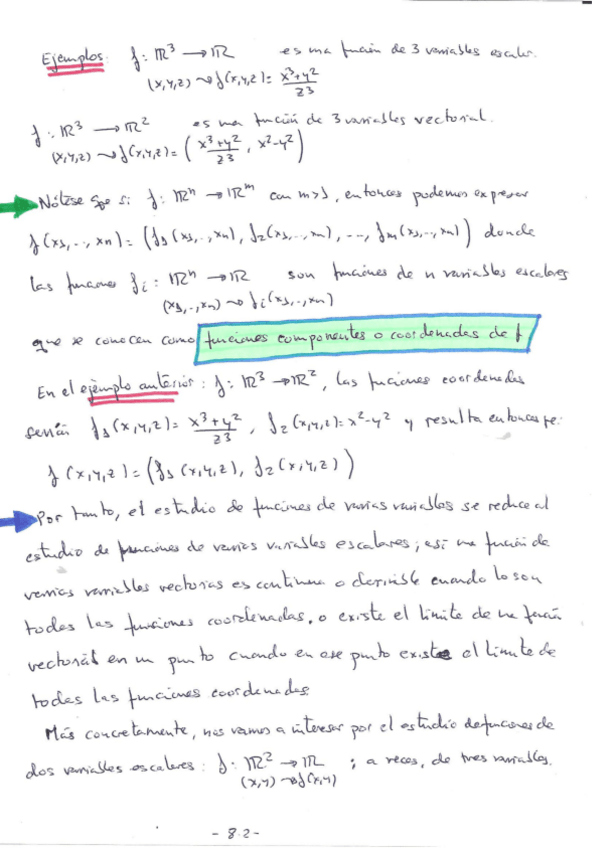 Ejemplos: f: ℝ³ → ℝ es una función de 3 variables escalar.
(x,y,z) ⤳ f(x,y,z) = (x³+y²)/z³
f: ℝ³ → ℝ² es una función de 3 variables vectorial.
(x,y,z) ⤳ f(x,y,z) = ((x³+y²)/z³, x²-y²)
Nótese que si f: ℝⁿ → ℝᵐ con m>1, entonces podemos expresar
f(x₁,..,xₙ) = (f₁(x₁,..,xₙ), f₂(x₁,..,xₙ), ..., fₘ(x₁,..,xₙ)) donde
las funciones fᵢ: ℝⁿ → ℝ son funciones de n variables escalares
(x₁,..,xₙ) ⤳ fᵢ(x₁,..,xₙ)
que se conocen como funciones componentes o coordenadas de f
En el ejemplo anterior: f: ℝ³ → ℝ², las funciones coordenadas
serían f₁(x,y,z) = (x³+y²)/z³, f₂(x,y,z) = x²-y² y resulta entonces que:
f(x,y,z) = (f₁(x,y,z), f₂(x,y,z))
Por tanto, el estudio de funciones de varias variables se reduce al
estudio de funciones de varias variables escalares; así una función de
varias variables vectorias es continua o derivable cuando lo son
todas las funciones coordenadas, o existe el límite de una función
vectorial en un punto cuando en ese punto existe el límite de
todas las funciones coordenadas
Más concretamente, nos vamos a interesar por el estudio de funciones de
dos variables escalares: f: ℝ² → ℝ ; a veces, de tres variables.
(x,y) ⤳ f(x,y)
- 8.2 -